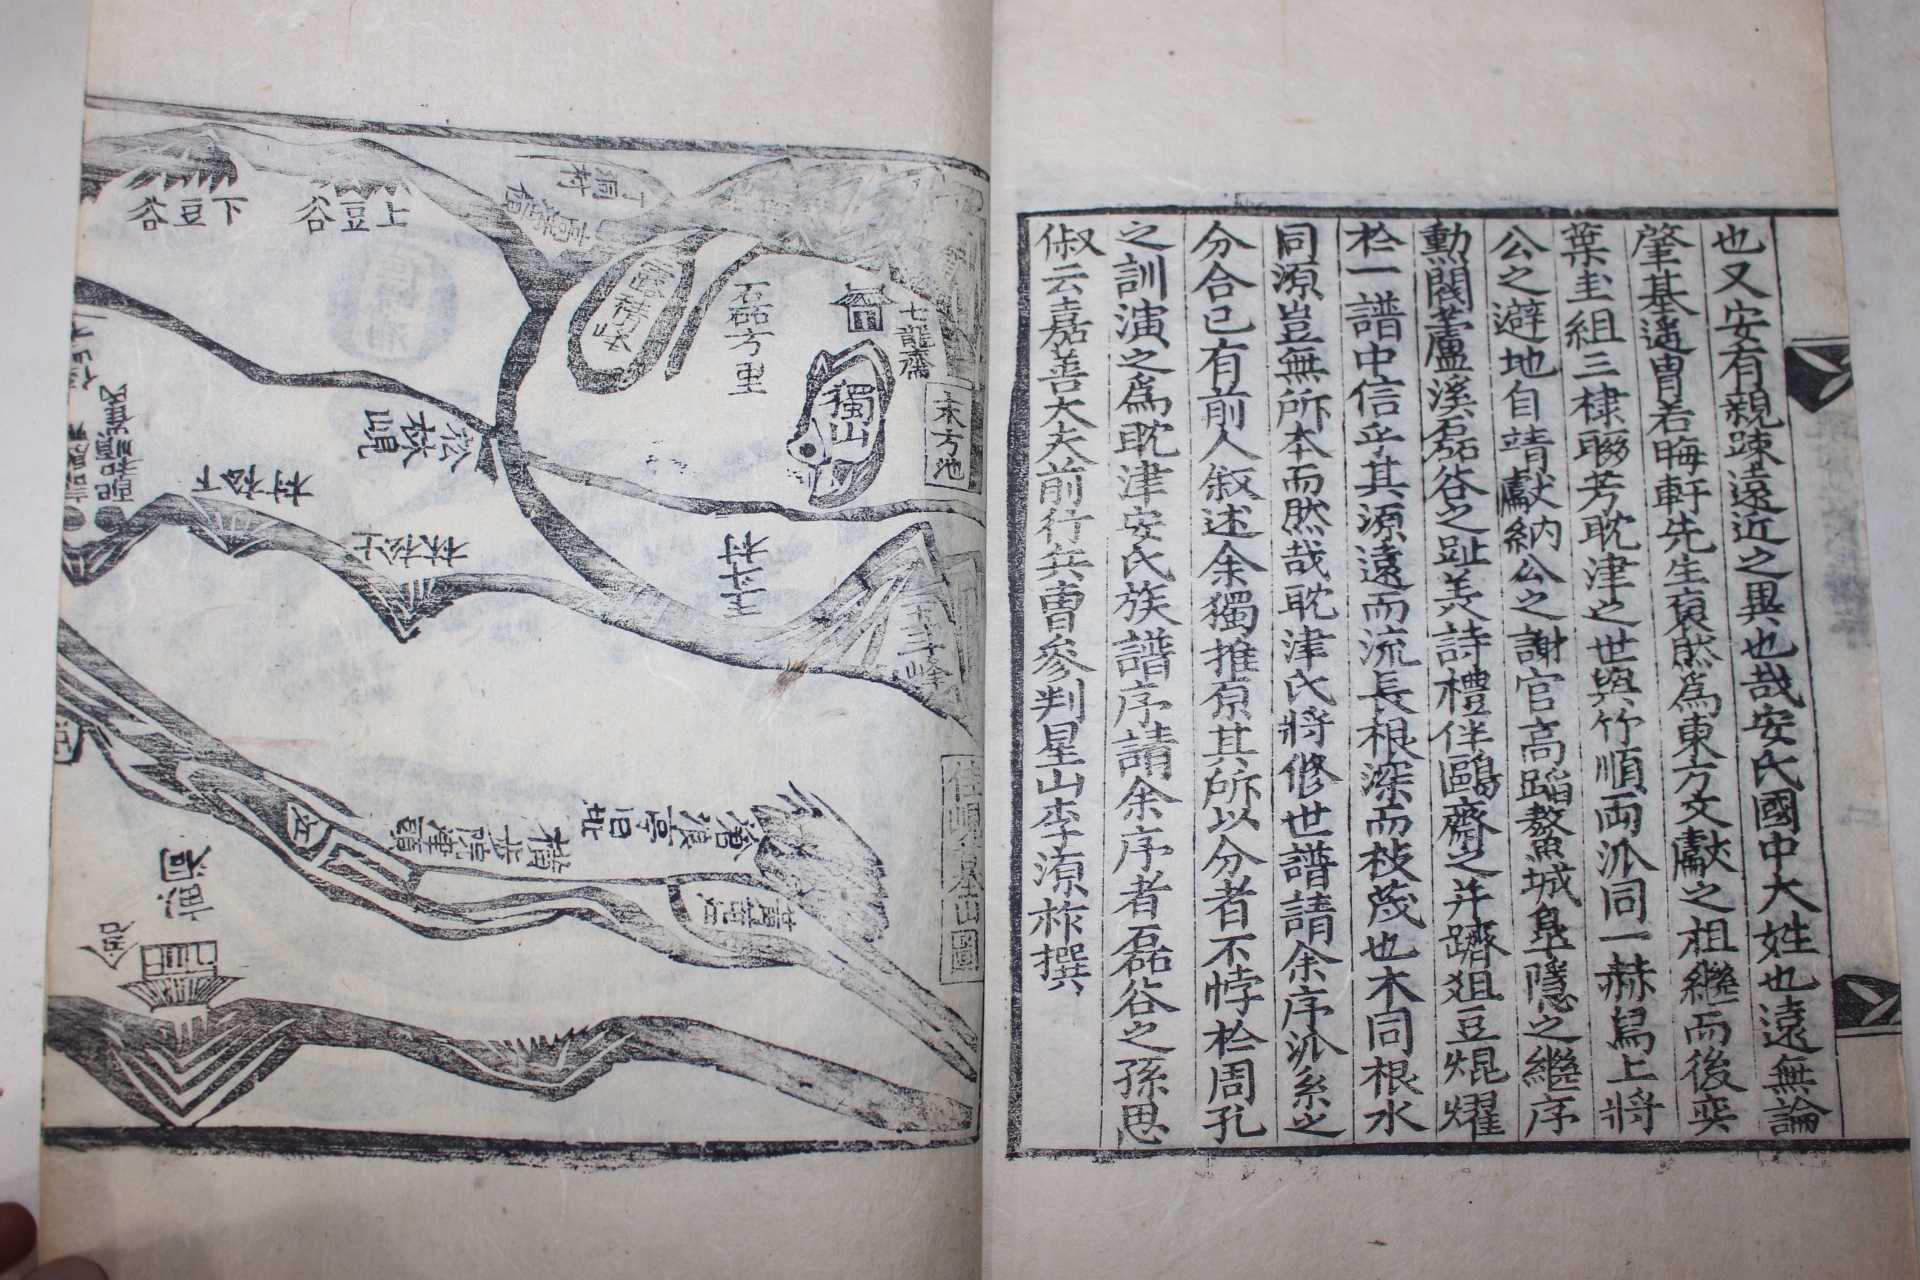 也又安有親踈遠近之異也哉安氏國中大姓也遠無論
肇基遥胄若晦軒先生裒然爲東方文獻之祖繼而後奕
葉圭組三棣聯芳耽津之世與竹順兩派同一赫舃上將
公之避地自靖獻納公之謝官高蹈鰲城皐隱之繼序
勳閥蘆溪磊谷之趾美詩禮伴鷗齋之并躋俎豆焜燿
於一譜中信乎其源遠而流長根深而枝茂也木同根水
同源豈無所本而然哉耽津氏將修世譜請余序派系之
分合已有前人叙述余獨推原其所以分者不悖於周孔
之訓演之爲耽津安氏族譜序請余序者磊谷之孫思
俶云嘉善大夫前行兵曹參判星山李源柞撰
佳峴墓山圖
玉子峰
末方池
七龍齋
獨山
磊方里
玉斗村
松楸峴
上松林
下松村
上豆谷
下豆谷
滄浪亭旧址